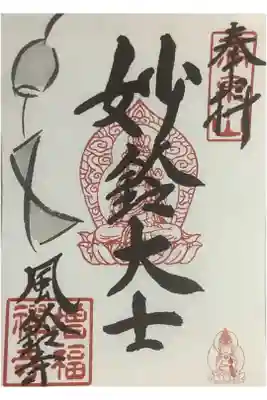 奉拝
妙鈴大士
風鈴寺